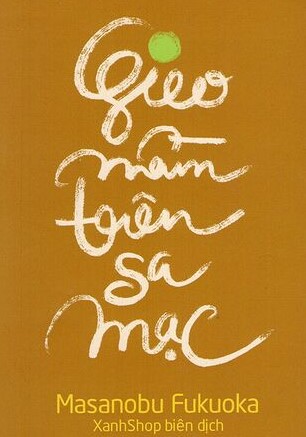 Gieo
mầm
trên
sa
mạc
Masanobu Fukuoka
XanhShop biên dịch